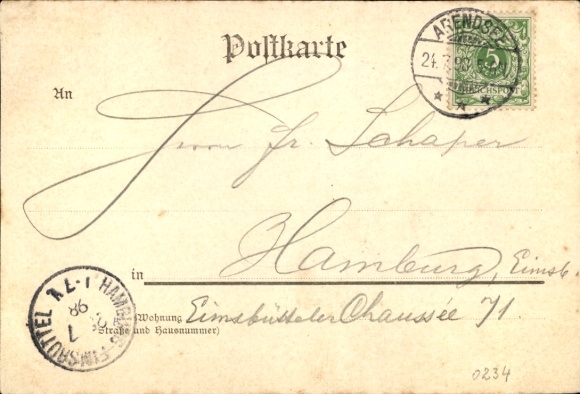 Postkarte
ARENDSEE
5
REICHSPOST
An
Herrn Fr. Schaper
Hamburg, Eimsb.
in
(Wohnung Eimsbütteler Chaussée 71.
Straße und Hausnummer)
HAMBURG-EIMSBÜTTEL
1
98
0234